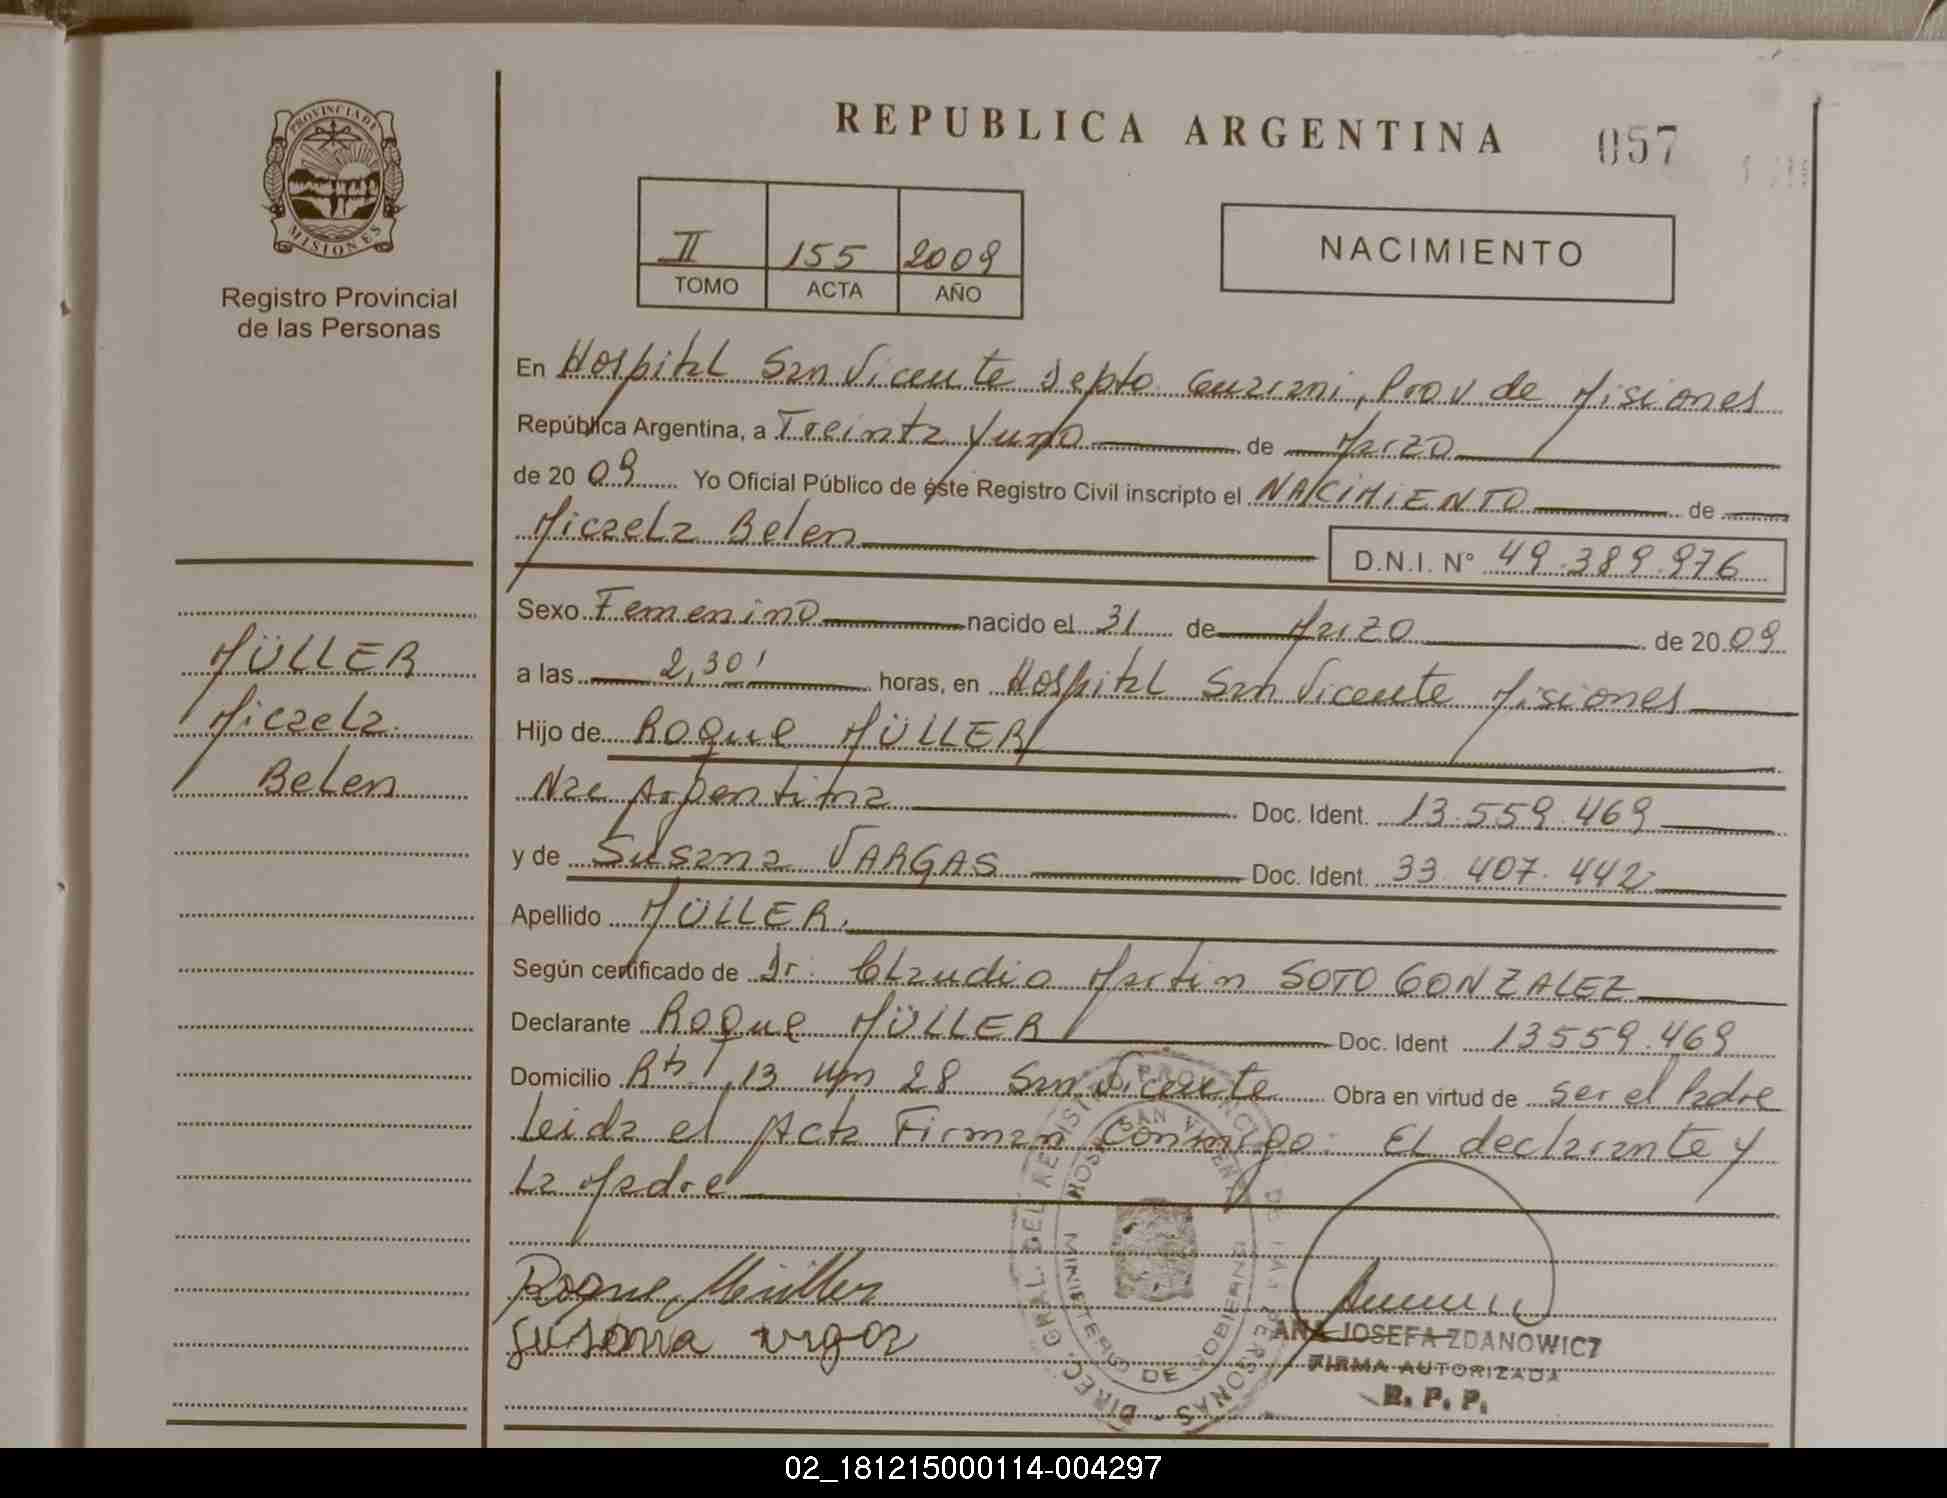 REPUBLICA ARGENTINA 057
PROVINCIA DE
MISIONES
Registro Provincial
de las Personas
II 155 2009
TOMO ACTA AÑO
NACIMIENTO
En Hospital San Vicente Depto Guarani, Prov de Misiones
República Argentina, a Treinta y uno de Marzo
de 20 09 Yo Oficial Público de éste Registro Civil inscripto el NACIMIENTO de
Micaela Belen D.N.I. N° 49.389.976
Sexo Femenino nacido el 31 de Marzo de 20 09
a las 2,30' horas, en Hospital San Vicente Misiones
Hijo de Roque MÜLLER
Nac Argentina Doc. Ident. 13.559.469
y de Susana VARGAS Doc. Ident. 33.407.442
Apellido MÜLLER.
Según certificado de Dr. Claudio Martin SOTO GONZALEZ
Declarante Roque MÜLLER Doc. Ident 13559.469
Domicilio Rta 13 Km 28 San Vicente Obra en virtud de ser el Padre
Leida el Acta Firman Conmigo: El declarante y
La Madre
MÜLLER
Micaela
Belen
Roque Müller
Susana
DIREC. GRAL. DEL REGISTRO PROVINCIAL DE LAS PERSONAS
HOSP. SAN VICENTE
MINISTERIO DE GOBIERNO
ANA JOSEFA ZDANOWICZ
FIRMA AUTORIZADA
R. P. P.
02_181215000114-004297